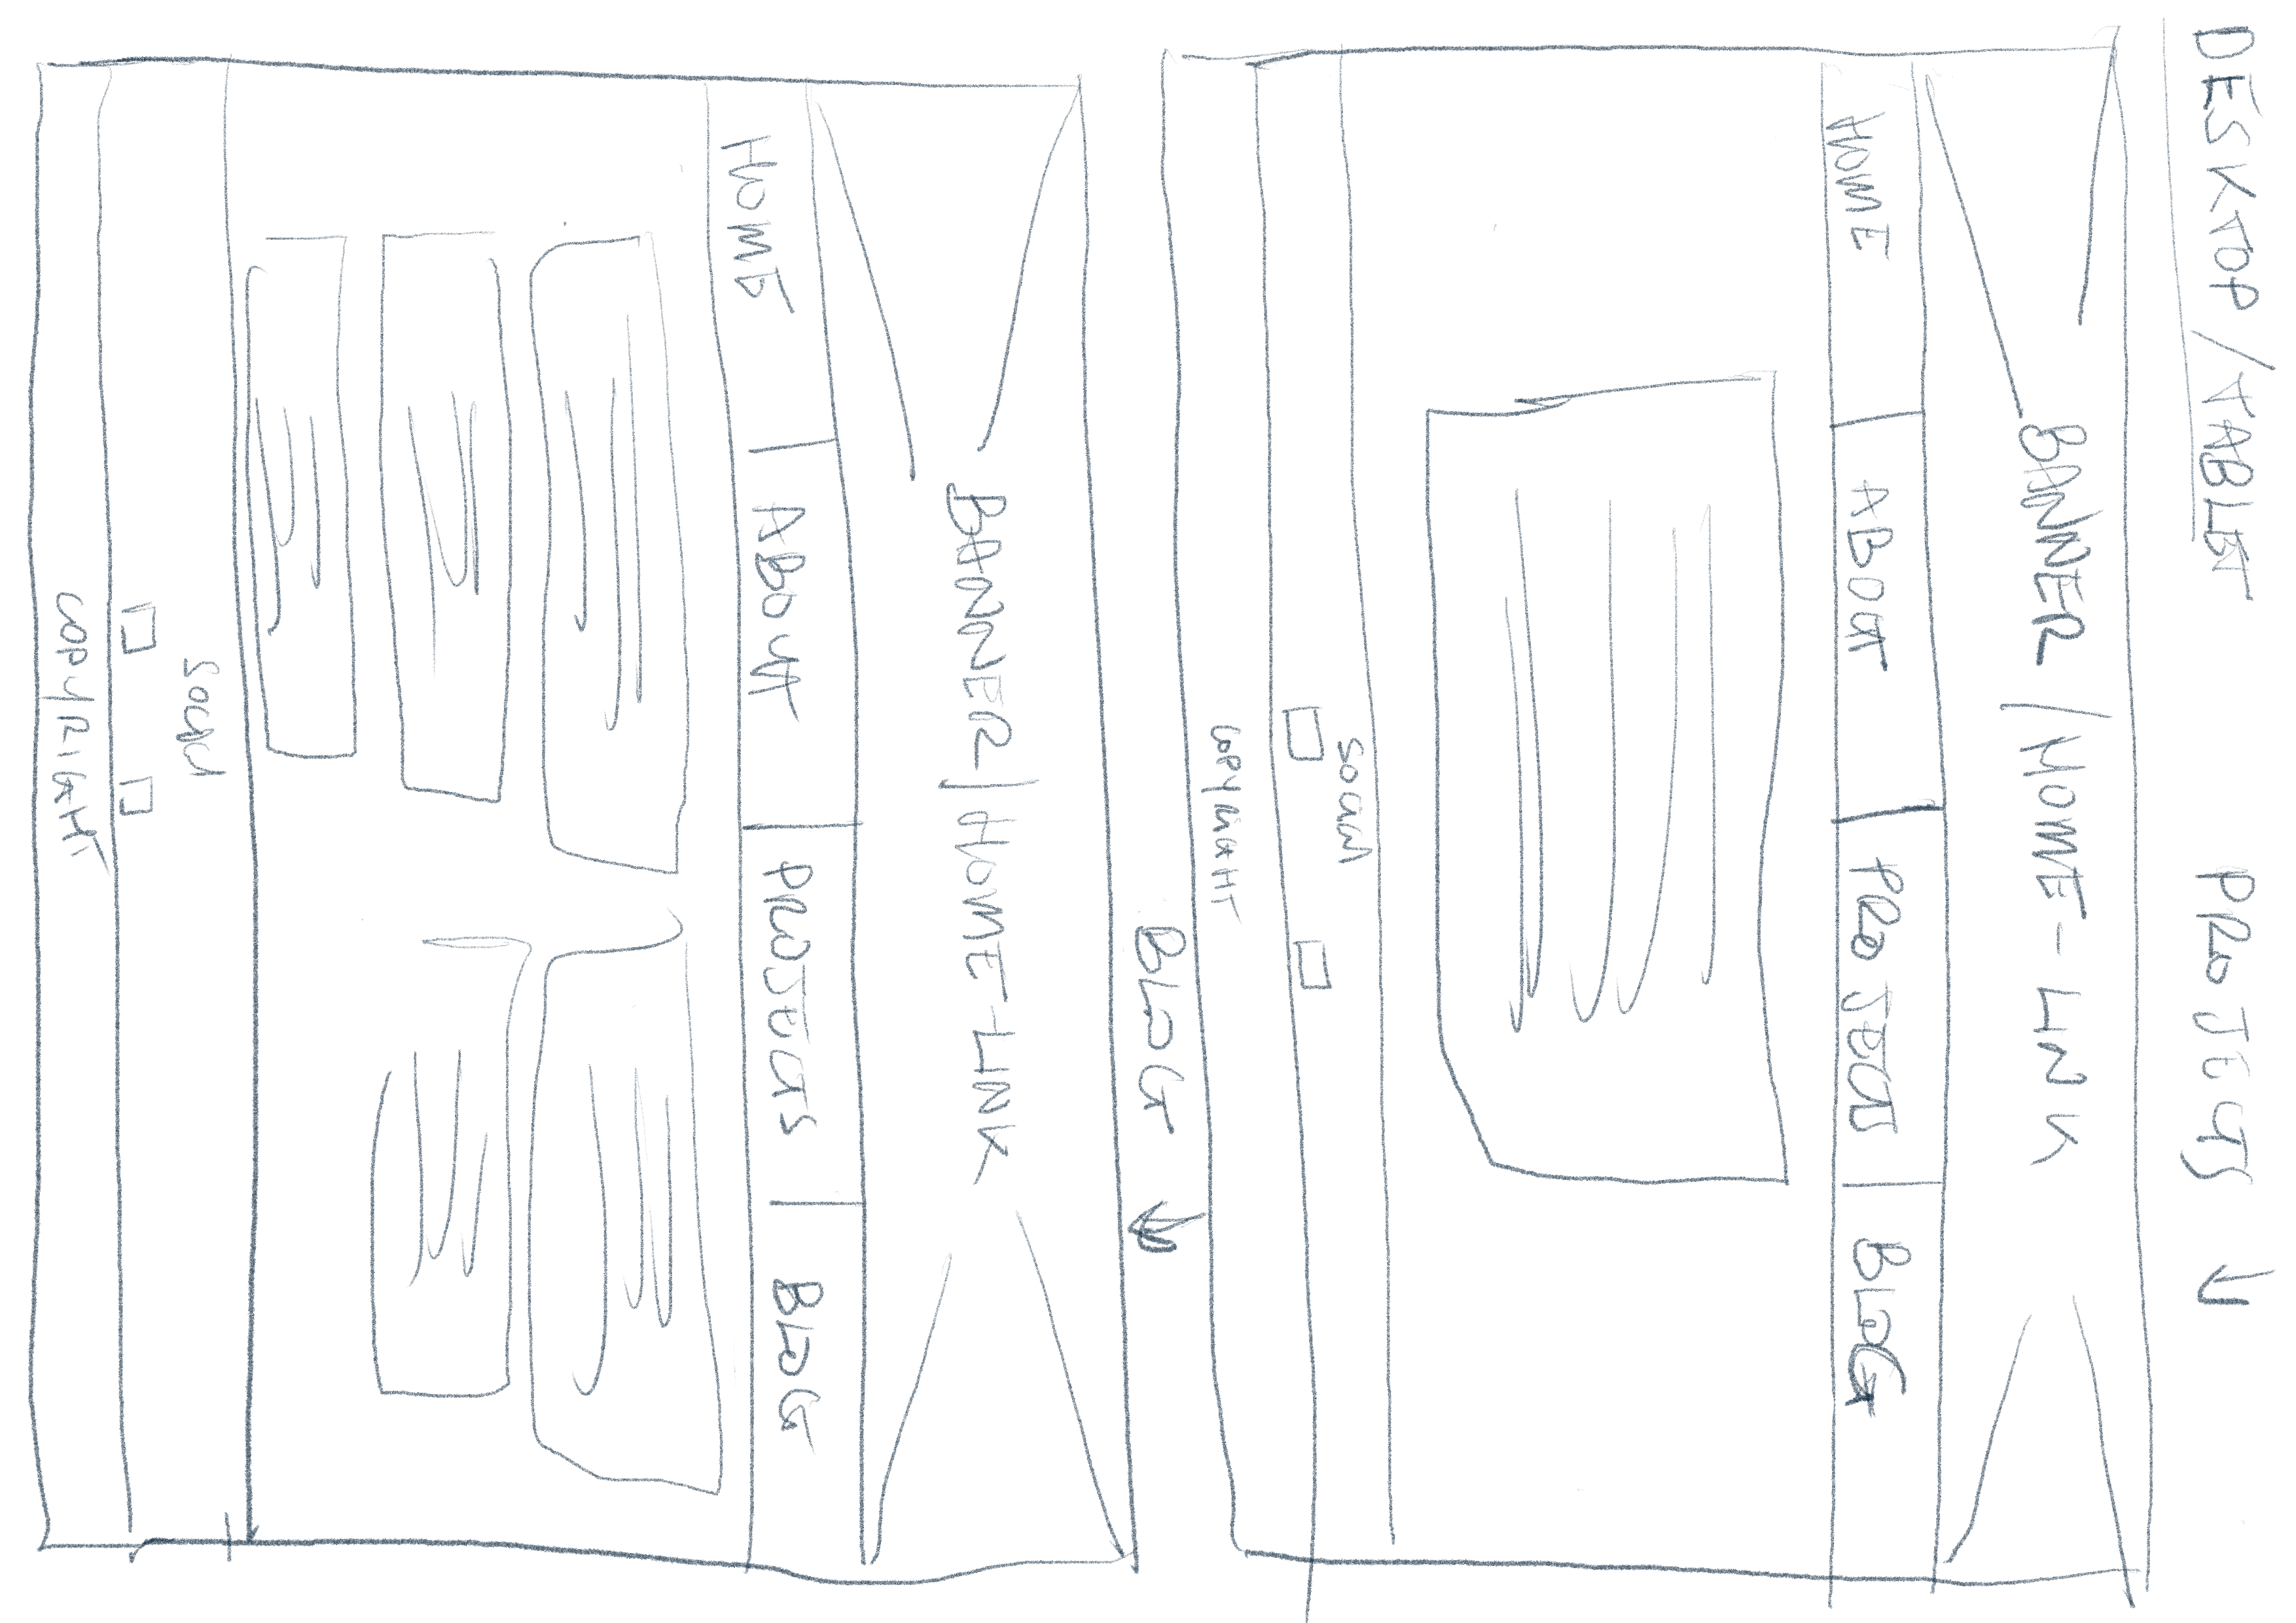 DESKTOP/TABLET PROJECTS ↓
BANNER/HOME-LINK
HOME ABOUT PROJECTS BLOG
SOCIAL
COPYRIGHT
BLOG ↓
BANNER/HOME-LINK
HOME ABOUT PROJECTS BLOG
SOCIAL
COPYRIGHT